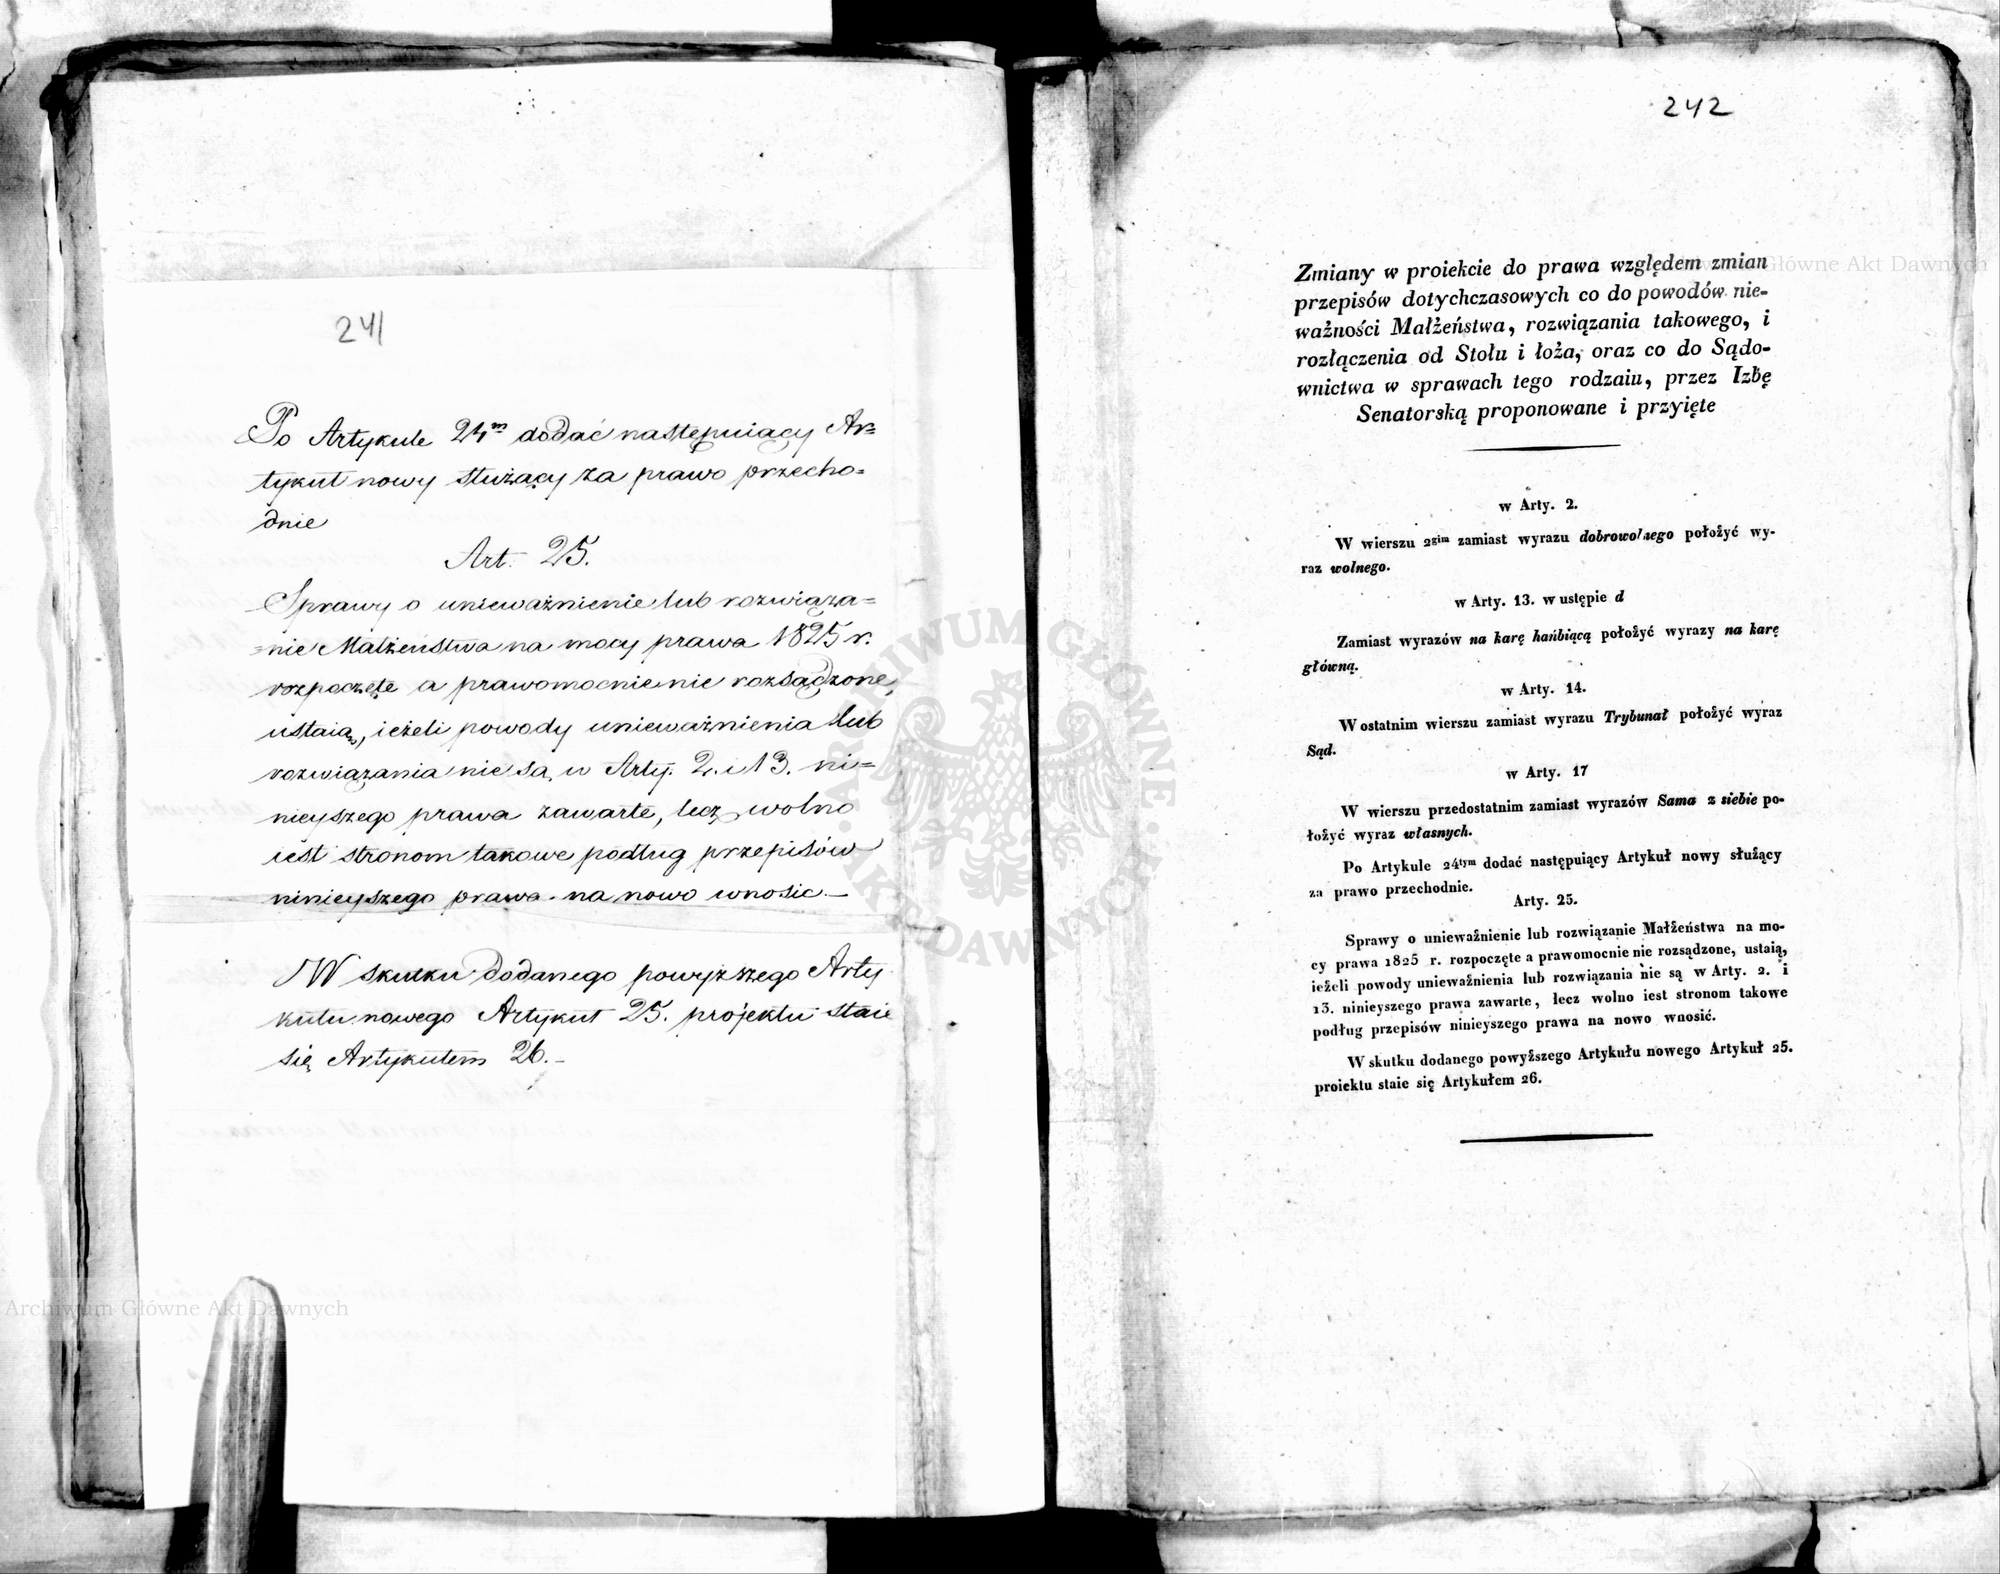 241
Po Artykule 24m dodać następuiący Ar=
tykuł nowy służący za prawo przecho=
dnie
Art. 25.
Sprawy o unieważnienie lub rozwiąza=
=nie Małżeństwa na mocy prawa 1825 r.
rozpoczęte a prawomocnie nie rozsądzone,
ustaią, ieżeli powody unieważnienia lub
rozwiązania nie są w Arty. 2. i 13. ni=
nieyszego prawa zawarte, lecz wolno
iest stronom takowe podług przepisów
ninieyszego prawa na nowo wnosic.—
W skutku dodanego powyższego Arty
kułu nowego Artykuł 25. projektu staie
się Artykułem 26.–
242
Zmiany w proiekcie do prawa względem zmian
przepisów dotychczasowych co do powodów nie-
ważności Małżeństwa, rozwiązania takowego, i
rozłączenia od Stołu i łoża, oraz co do Sądo-
wnictwa w sprawach tego rodzaiu, przez Izbę
Senatorską proponowane i przyięte
w Arty. 2.
W wierszu 2gim zamiast wyrazu dobrowolnego położyć wy-
raz wolnego.
w Arty. 13. w ustępie d
Zamiast wyrazów na karę hańbiącą położyć wyrazy na karę
główną.
w Arty. 14.
W ostatnim wierszu zamiast wyrazu Trybunał położyć wyraz
Sąd.
w Arty. 17
W wierszu przedostatnim zamiast wyrazów Sama z siebie po-
łożyć wyraz własnych.
Po Artykule 24tym dodać następuiący Artykuł nowy służący
za prawo przechodnie.
Arty. 25.
Sprawy o unieważnienie lub rozwiązanie Małżeństwa na mo-
cy prawa 1825 r. rozpoczęte a prawomocnie nie rozsądzone, ustaią,
ieżeli powody unieważnienia lub rozwiązania nie są w Arty. 2. i
13. ninieyszego prawa zawarte, lecz wolno iest stronom takowe
podług przepisów ninieyszego prawa na nowo wnosić.
W skutku dodanego powyższego Artykułu nowego Artykuł 25.
proiektu staie się Artykułem 26.
ARCHIWUM GŁÓWNE
AKT DAWNYCH
Archiwum Główne Akt Dawnych
Archiwum Główne Akt Dawnych